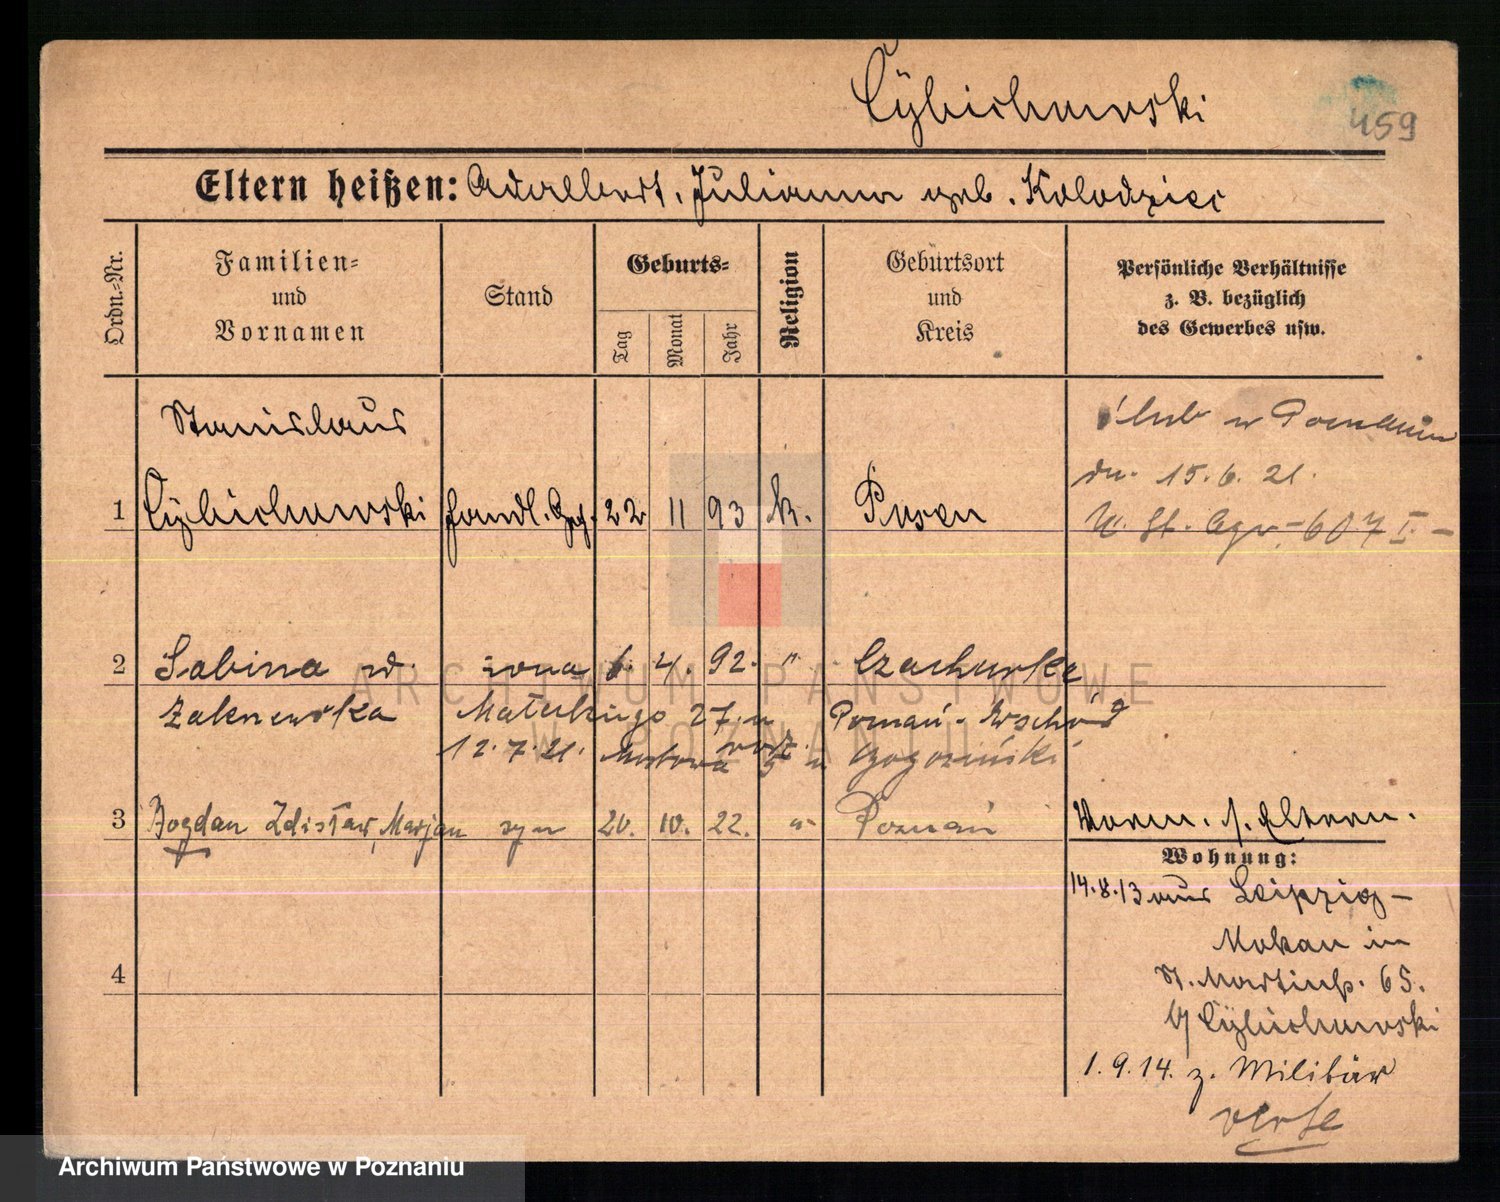 Cybichowski
459
Eltern heißen: Adalbert, Julianna geb. Kolodziej
Ordn.=Nr.
Familien=
und
Vornamen
Stand
Geburts=
Tag
Monat
Jahr
Religion
Geburtsort
und
Kreis
Persönliche Verhältnisse
z. B. bezüglich
des Gewerbes usw.
Stanislaus
1 Cybichowski Handl. Geh. 22 11 93 k. Posen
ślub w Poznaniu
dn. 15.6.21.
607 I -
2 Sabina z d. żona 6. 4. 92. " Czachurki
Żakowska Małeckiego 27. u
12.7.21. Mostowa 5 u
Poznań - Wschód
Gogoziński
3 Bogdan Zdisław, Marjan syn 20. 10. 22. " Poznań
Vorm. s. Eltern.
Wohnung:
14.8.13 aus Leipzig -
Mokau in
St. Martinstr. 65.
b/ Cybichowski
1.9.14. z. Militär
verte
4
ARCHIWUM PAŃSTWOWE
W POZNANIU
Archiwum Państwowe w Poznaniu